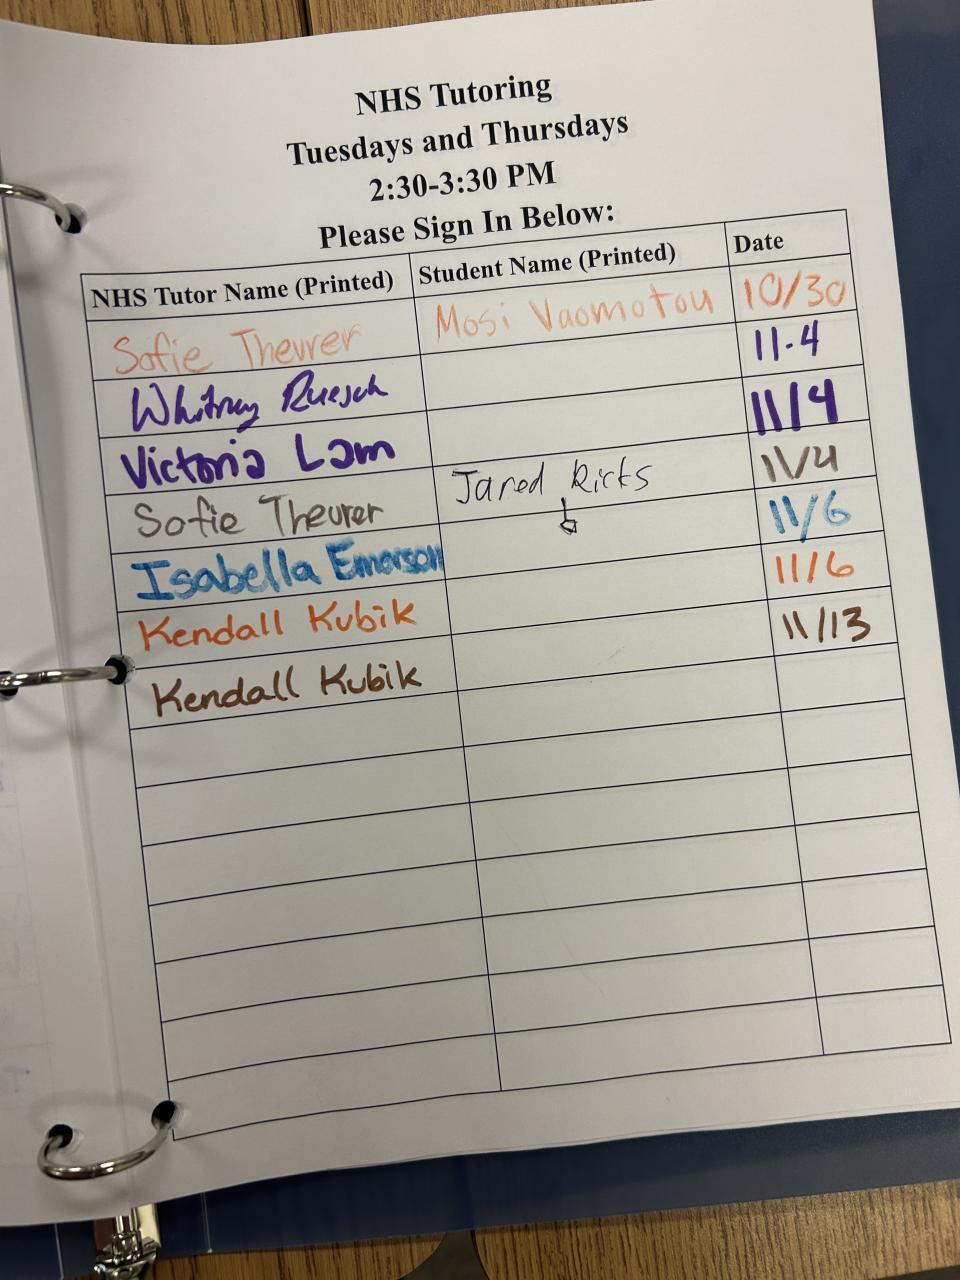 NHS Tutoring
Tuesdays and Thursdays
2:30-3:30 PM
Please Sign In Below:
NHS Tutor Name (Printed) Student Name (Printed) Date
Sofie Theurer Mosi Vaomotou 10/30
Whitney Ruesch 11-4
Victoria Lam 11/4
Sofie Theurer Jared Ricks 11/4
Isabella Emerson 11/6
Kendall Kubik 11/6
Kendall Kubik 11/13